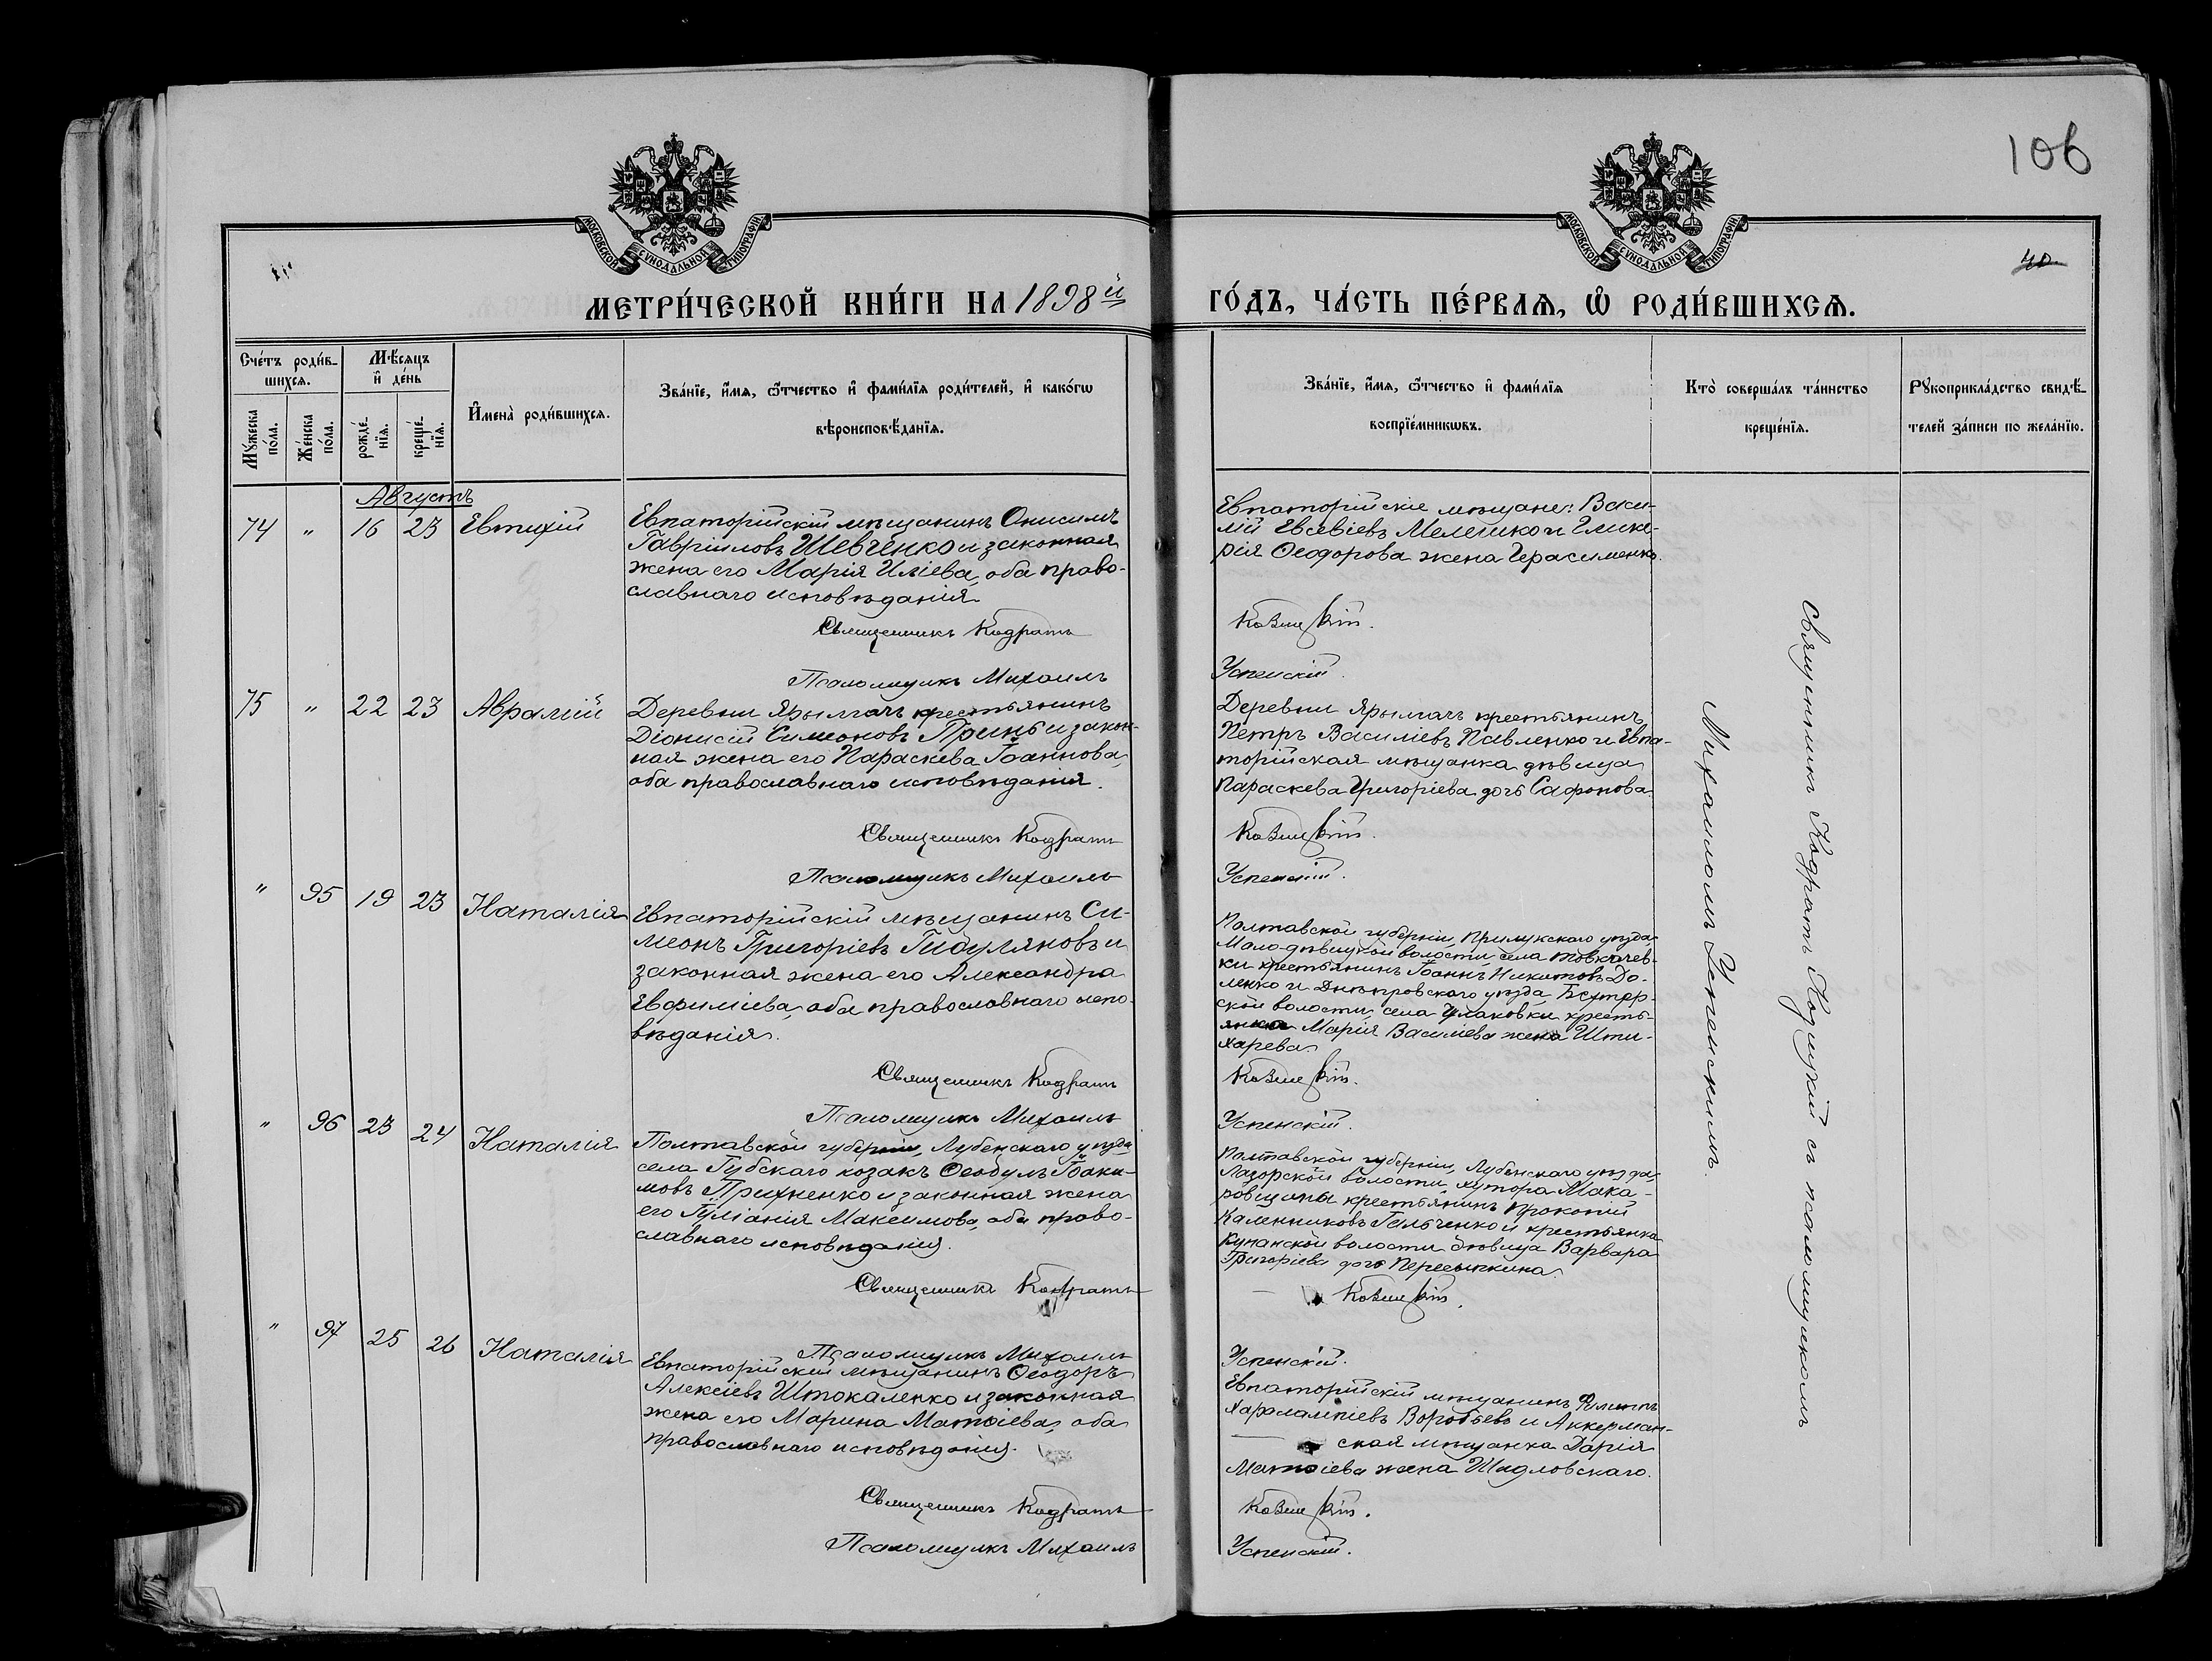 106
40
МОСКОВСКОЙ СѴНОДАЛЬНОЙ ТИПОГРАФІИ
МОСКОВСКОЙ СѴНОДАЛЬНОЙ ТИПОГРАФІИ
МЕТРИ́ЧЕСКОЙ КНИ́ГИ НА 1898й ГО́ДЪ, ЧА́СТЬ ПЕ́РВАѦ, Ѡ҆ РОДИ́ВШИХСѦ.
Сче́тъ роди́в-
шихсѧ.
Мꙋжеска
по́ла.
Же́нска
по́ла.
Мѣ́сѧцъ
и҆ де́нь
рожде́-
нїѧ.
креще́-
нїѧ.
И҆мена̀ роди́вшихсѧ.
Зва́нїе, и҆́мѧ, ѻ҆́тчество и҆ фами́лїѧ роди́телей, и҆ како́гѡ
вѣроисповѣ́данїѧ.
Зва́нїе, и҆́мѧ, ѻ҆́тчество и҆ фами́лїѧ
воспрїе́мникѡвъ.
Кто̀ соверша́лъ та́инство
креще́нїѧ.
Рꙋкоприкла́дство свидѣ́-
телей за́писи по жела́нїю.
Августъ
74 " 16 23 Евтихій
Евпаторійскій мѣщанинъ Онисимъ
Гавріиловъ Шевченко и законная
жена его Марія Иліева, оба право-
славнаго исповѣданія.
Священникъ Кодратъ
Псаломщикъ Михаилъ
Евпаторійскіе мѣщане: Васи-
лій Евсевіевъ Мелешко и Глике-
рія Ѳеодорова жена Герасименко.
Козицкій.
Успенскій.
75 " 22 23 Аврамій
Деревни Ярылгачъ крестьянинъ
Діонисій Симеоновъ Гринь и закон-
ная жена его Параскева Іоаннова,
оба православнаго исповѣданія.
Священникъ Кодратъ
Псаломщикъ Михаилъ
Деревни Ярылгачъ крестьянинъ
Петръ Василіевъ Павленко и Евпа-
торійская мѣщанка дѣвица
Параскева Григоріева дочь Сафонова.
Козицкій.
Успенскій.
" 95 19 23 Наталія
Евпаторійскій мѣщанинъ Си-
меонъ Григоріевъ Гидуляновъ и
законная жена его Александра
Евфиміева, оба православнаго испо-
вѣданія.
Священникъ Кодратъ
Псаломщикъ Михаилъ
Полтавской губерніи, Прилукскаго уѣзда,
Мало-дѣвицкой волости, села Товкачев-
ки крестьянинъ Іоаннъ Никитовъ До-
ленко и Днѣпровскаго уѣзда
ской волости, села кресть-
янка Марія Василіева жена Шти-
харева.
Козицкій.
Успенскій.
" 96 23 24 Наталія
Полтавской губерніи, Лубенскаго уѣзда
села Губскаго козакъ Ѳеодулъ Іоаки-
мовъ Прихненко и законная жена
его Іуліанія Максимова, оба право-
славнаго исповѣданія.
Священникъ Кодратъ
Псаломщикъ Михаилъ
Полтавской губерніи, Лубенскаго уѣзда,
Лазорской волости, хутора Мака-
ровщины крестьянинъ Прокопій
Калениковъ Гальченко и крестьянка
волости дѣвица Варвара
Григоріева дочь Пересыпкина.
Козицкій.
Успенскій.
" 97 25 26 Наталія
Евпаторійскій мѣщанинъ Ѳеодоръ
Алексіевъ Штокаленко и законная
жена его Марина Матѳіева, оба
православнаго исповѣданія.
Священникъ Кодратъ
Псаломщикъ Михаилъ
Евпаторійскій мѣщанинъ Филиппъ
Харлампіевъ Воробьевъ и Аккерман-
ская мѣщанка Дарія
Матѳіева жена Шидловскаго.
Козицкій.
Успенскій.
Священникъ Кодратъ Козицкій съ псаломщикомъ
Михаиломъ Успенскимъ.